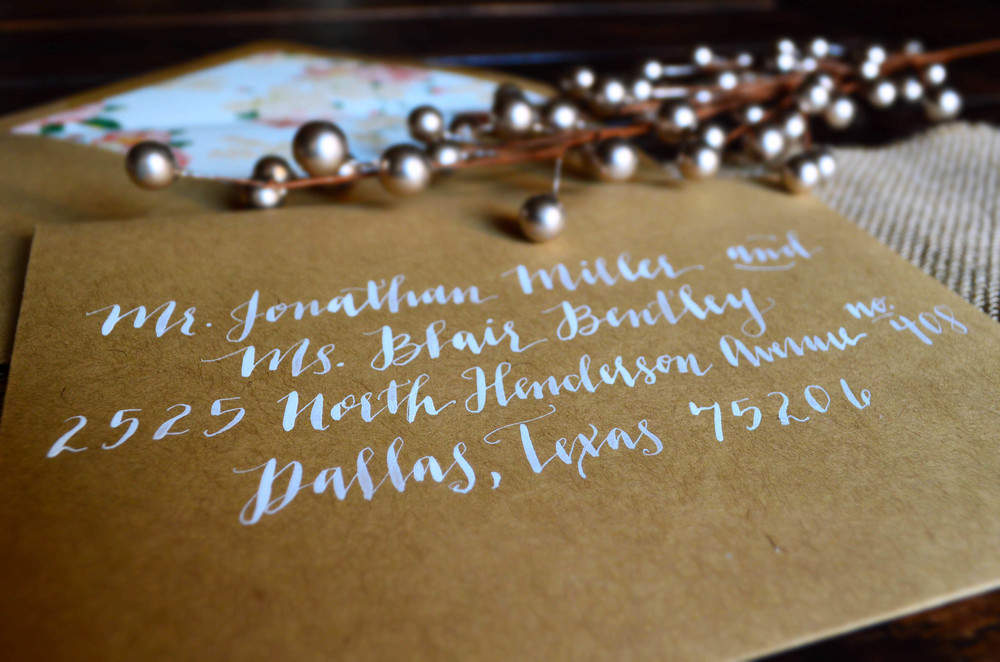 Mr. Jonathan Miller and
Ms. Blair Bentley
2525 North Henderson Avenue no. 408
Dallas, Texas 75206